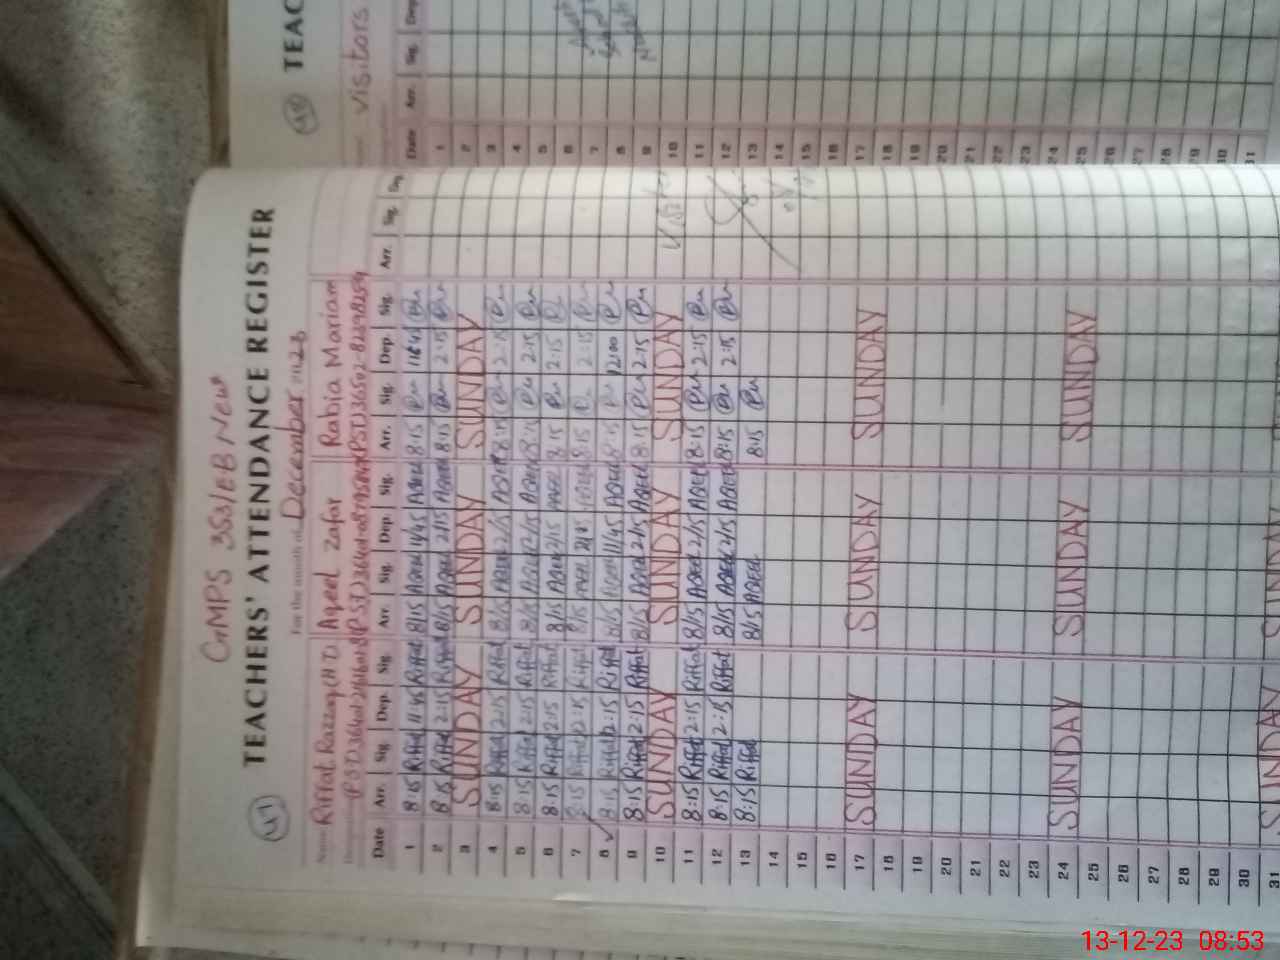 GMPS 353/EB New
41
TEACHERS' ATTENDANCE REGISTER
For the month of December 2023
Riffat Razzaq (H.T) Aqeel Zafar Rabia Mariam
Date Arr. Sig. Dep. Sig. Arr. Sig. Dep. Sig. Arr. Sig. Dep. Sig. Arr. Sig.
1 8:15 Riffat 11:45 Riffat 8/15 Aqeel 11/45 Aqeel 8:15
2 8:15 Riffat 2:15 Riffat 8/15 Aqeel 2/15 Aqeel 8:15 2:15
3 SUNDAY SUNDAY SUNDAY
4 8:15 Riffat 2:15 Riffat 8/15 Aqeel 2/15 Aqeel 8:15 2:15
5 8:15 Riffat 2:15 Riffat 8/15 Aqeel 2/15 Aqeel 8:15 2:15
6 8:15 Riffat 2:15 Riffat 8/15 Aqeel 2/15 Aqeel 8:15 2:15
7 8:15 Riffat 2:15 Riffat 8/15 Aqeel Aqeel 8:15 2:15
8 8:15 Riffat 2:15 Riffat 8/15 Aqeel 11/45 Aqeel 8:15 12:00
9 8:15 Riffat 2:15 Riffat 8/15 Aqeel 2/15 Aqeel 8:15 2:15
10 SUNDAY SUNDAY SUNDAY
11 8:15 Riffat 2:15 Riffat 8/15 Aqeel 2/15 Aqeel 8:15 2:15
12 8:15 Riffat 2:15 Riffat 8/15 Aqeel 2/15 Aqeel 8:15 2:15
13 8:15 Riffat 8/15 Aqeel 8:15
14
15
16
17 SUNDAY SUNDAY SUNDAY
18
19
20
21
22
23
24 SUNDAY SUNDAY SUNDAY
25
26
27
28
29
30
31 SUNDAY SUNDAY
TEAC
visitors
Date Arr. Sig. Dep.
1
2
3
4
5
6
7
8
9
10
11
12
13
14
15
16
17
18
19
20
21
22
23
24
25
26
27
28
29
30
31
13-12-23 08:53